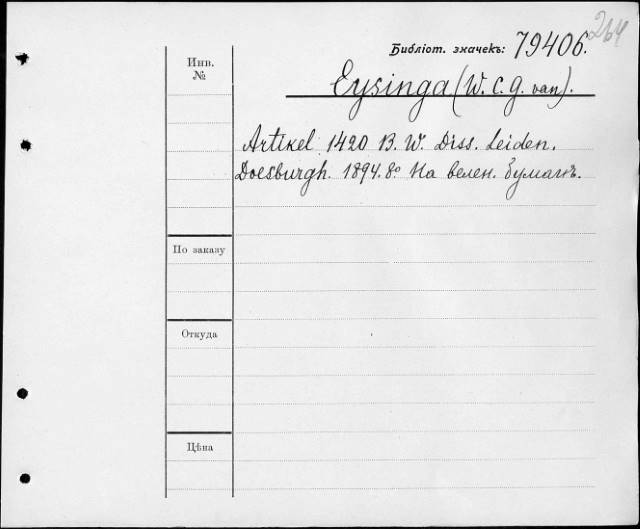 264
Библіот. значекъ: 79406.
Инв.
№
Eysinga (W. C. G. van).
Artikel 1420 B. W. Diss. Leiden.
Doesburgh. 1894. 8º На велен. бумагѣ.
По заказу
Откуда
Цѣна